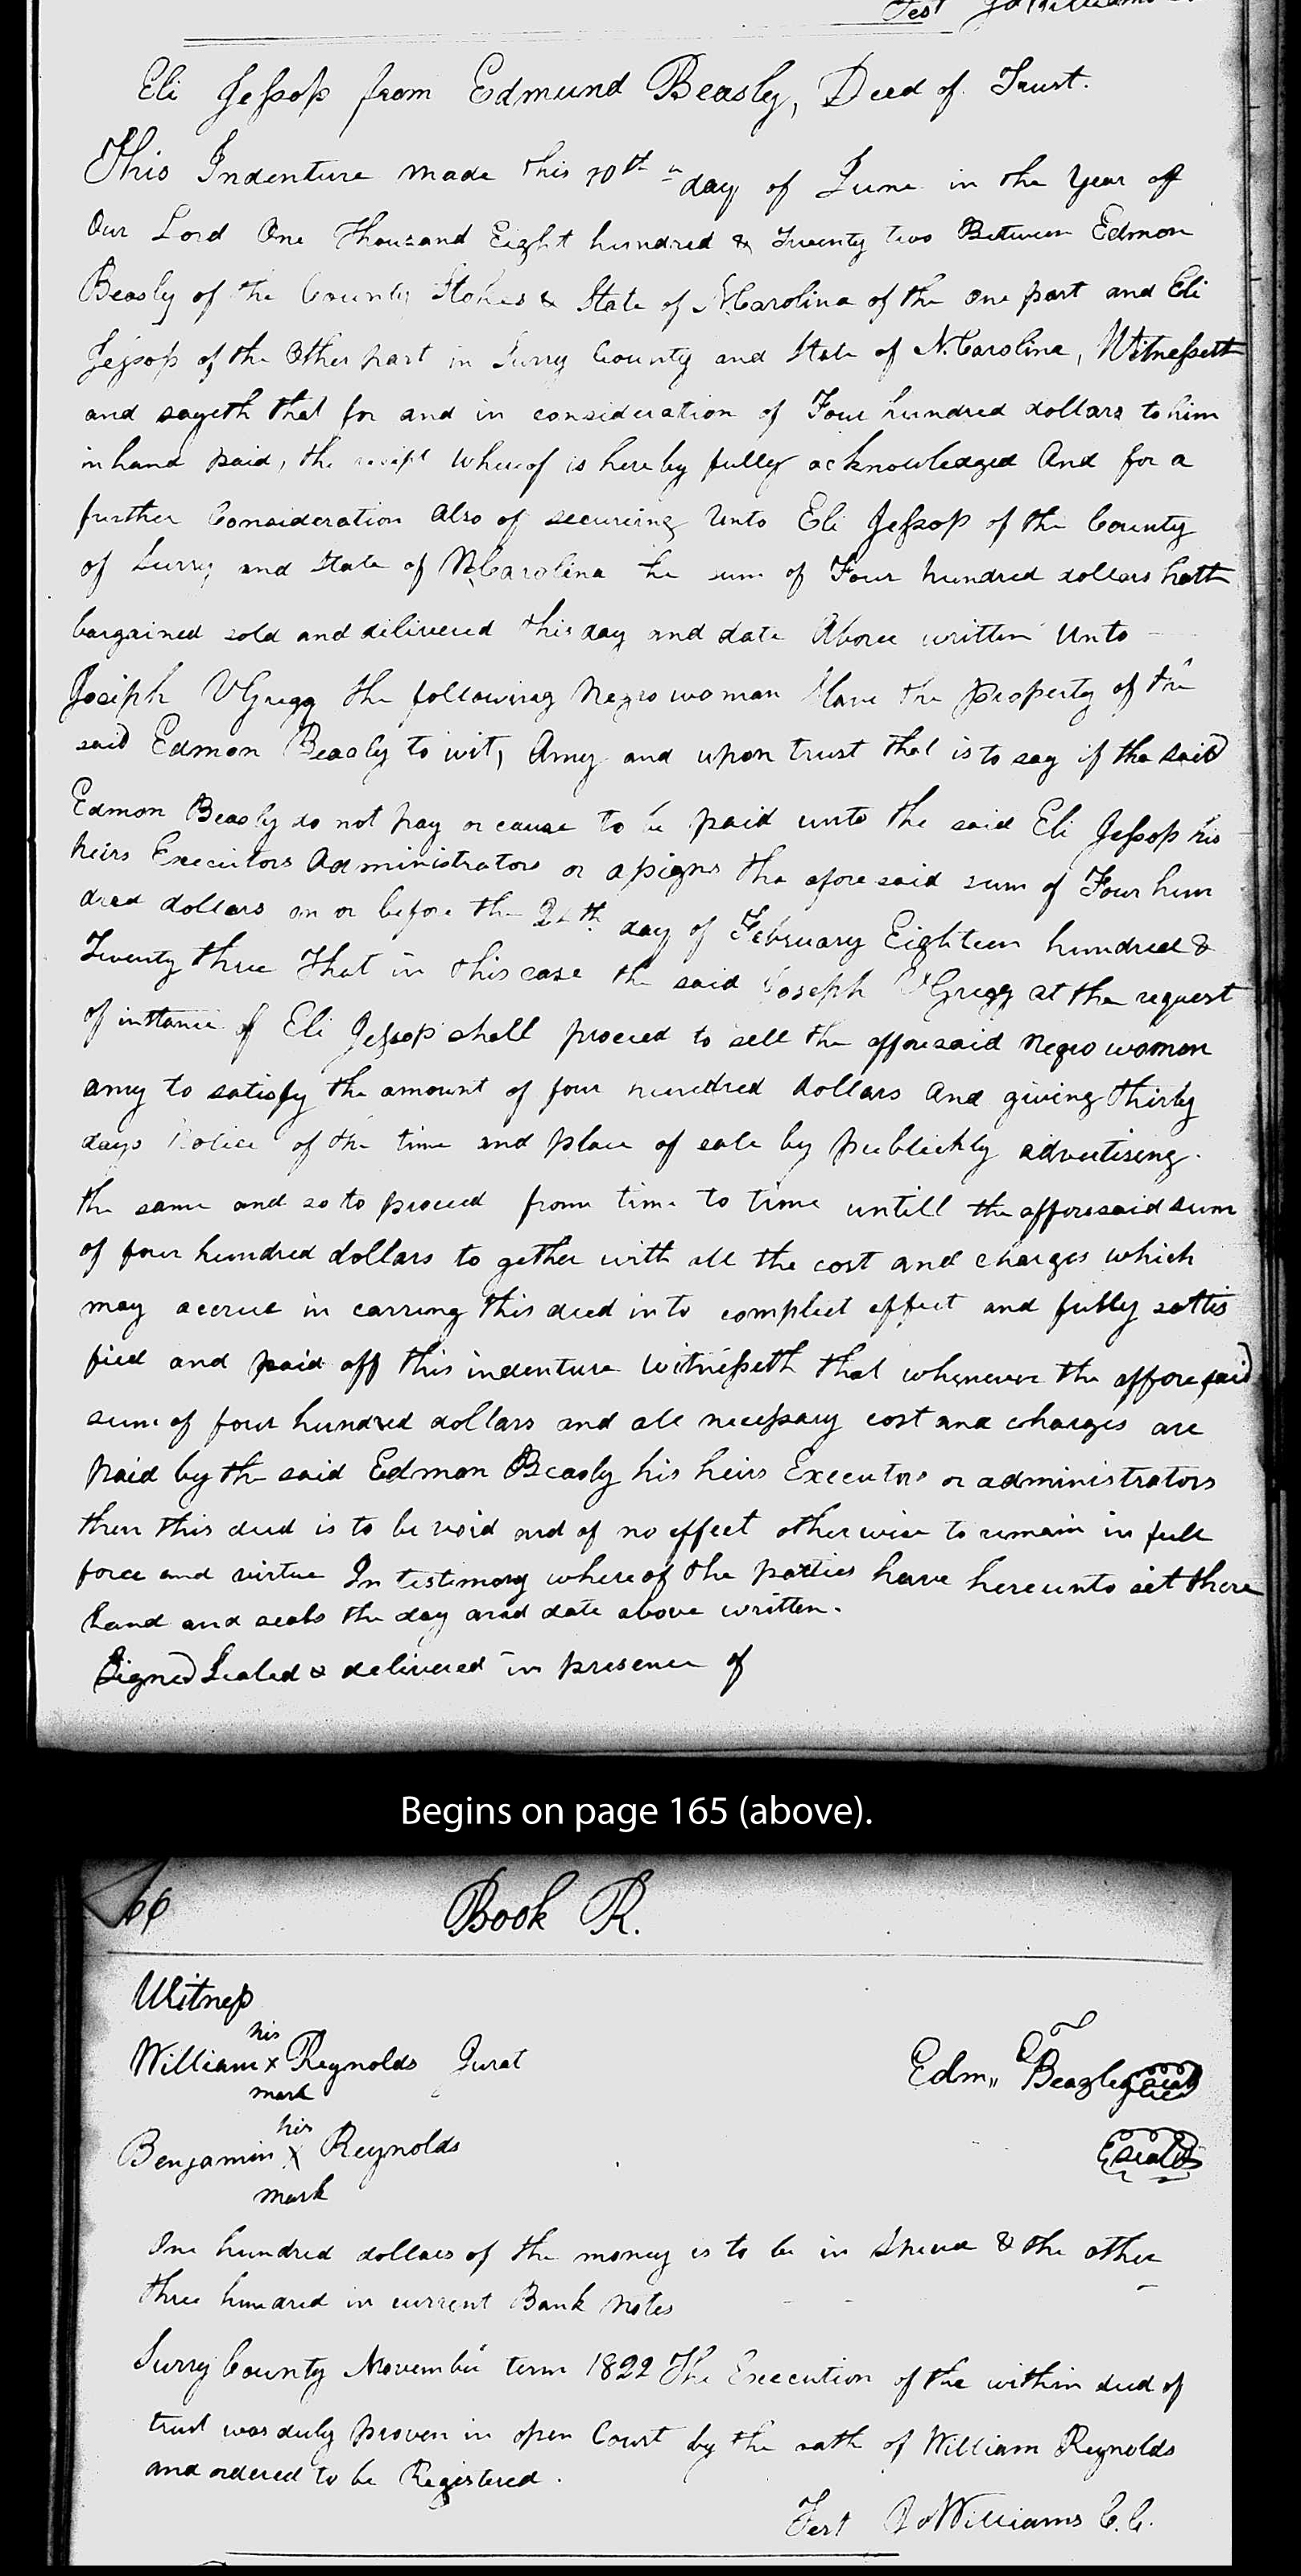 Test Jo Williams
Eli Jessop from Edmund Beasly, Deed of Trust.
This Indenture made this 10th day of June in the Year of
Our Lord One Thousand Eight hundred & Twenty two Between Edmon
Beasly of the County Stokes & State of N.Carolina of the one part and Eli
Jessop of the Other part in Surry County and State of N.Carolina, Witnesseth
and sayeth that for and in consideration of Four hundred dollars to him
in hand paid, the receipt whereof is hereby fully acknowledged And for a
further Consideration Also of secureing Unto Eli Jessop of the County
of Surry and State of N.Carolina the sum of Four hundred dollars hath
bargained sold and delivered this day and date Above written Unto
Joseph VGregg the following Negro woman Slave the Property of the
said Edmon Beasly to wit, Amy and upon trust that is to say if the said
Edmon Beasly do not pay or cause to be paid unto the said Eli Jessop his
heirs Executors Administrators or assigns the afore said sum of Four hun
dred dollars on or before the day of February Eighteen hundred &
Twenty three That in this case the said Joseph VGregg at the request
of instance of Eli Jessop shall proceed to sell the afforesaid Negro woman
amy to satisfy the amount of four hundred dollars And giving thirty
days Notice of the time and place of sale by publickly advertiseing.
the same and so to proceed from time to time untill the afforesaid sum
of four hundred dollars to gether with all the cost and charges which
may accrue in carring this deed into compleet effect and fully sattis
fied and paid off this indenture witnesseth that whenever the afforesaid
sum of four hundred dollars and all necessary cost and charges are
paid by the said Edmon Beasly his heirs Executors or administrators
then this deed is to be void and of no effect otherwise to remain in full
force and virtue In testimony whereof the parties have hereunto set there
hand and seals the day and date above written.
Signed Sealed & delivered in presence of
Begins on page 165 (above).
166 Book R.
Witness
his
William x Reynolds Jurat Edm,, Beazley seal
mark
his
Benjamin x Reynolds seal
mark
One hundred dollars of the money is to be in & the other
three hundred in current Bank Notes
Surry County November term 1822 The Execution of the within deed of
trust was duly proven in open Court by the oath of William Reynolds
and ordered to be Registered.
Test Jo Williams C.C.